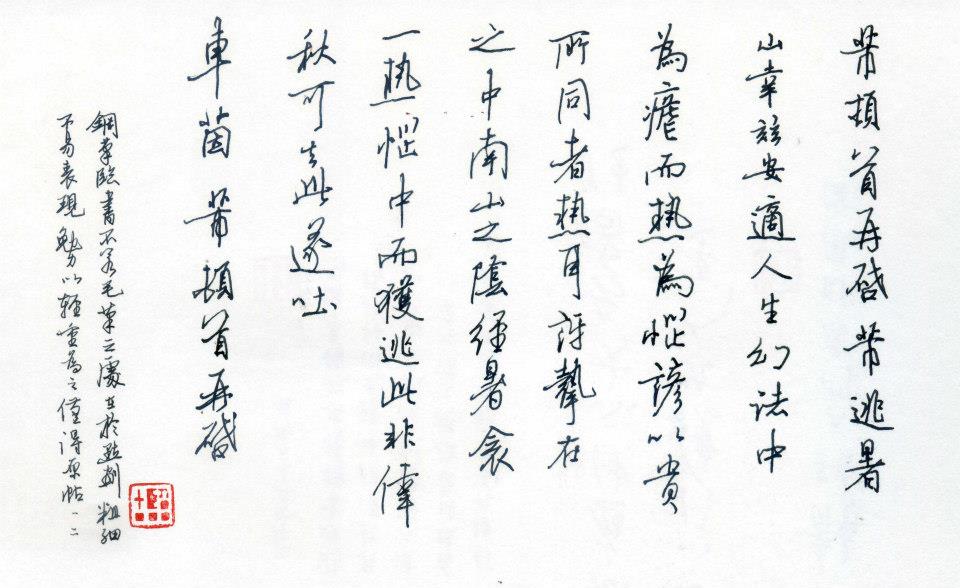 芾頓首再啟芾逃暑
山幸茲安適人生幻法中
為瘧而熱為惱諺以貴
所同者熱耳訝摯在
之中南山之陰經暑衾
一熱惱中而獲逃此非偉
秋可去此遂吐
車茵芾頓首再啟
鋼筆臨書不若毛筆之處在於點劃粗細
不易表現勉力以輕重為之僅得原帖一二